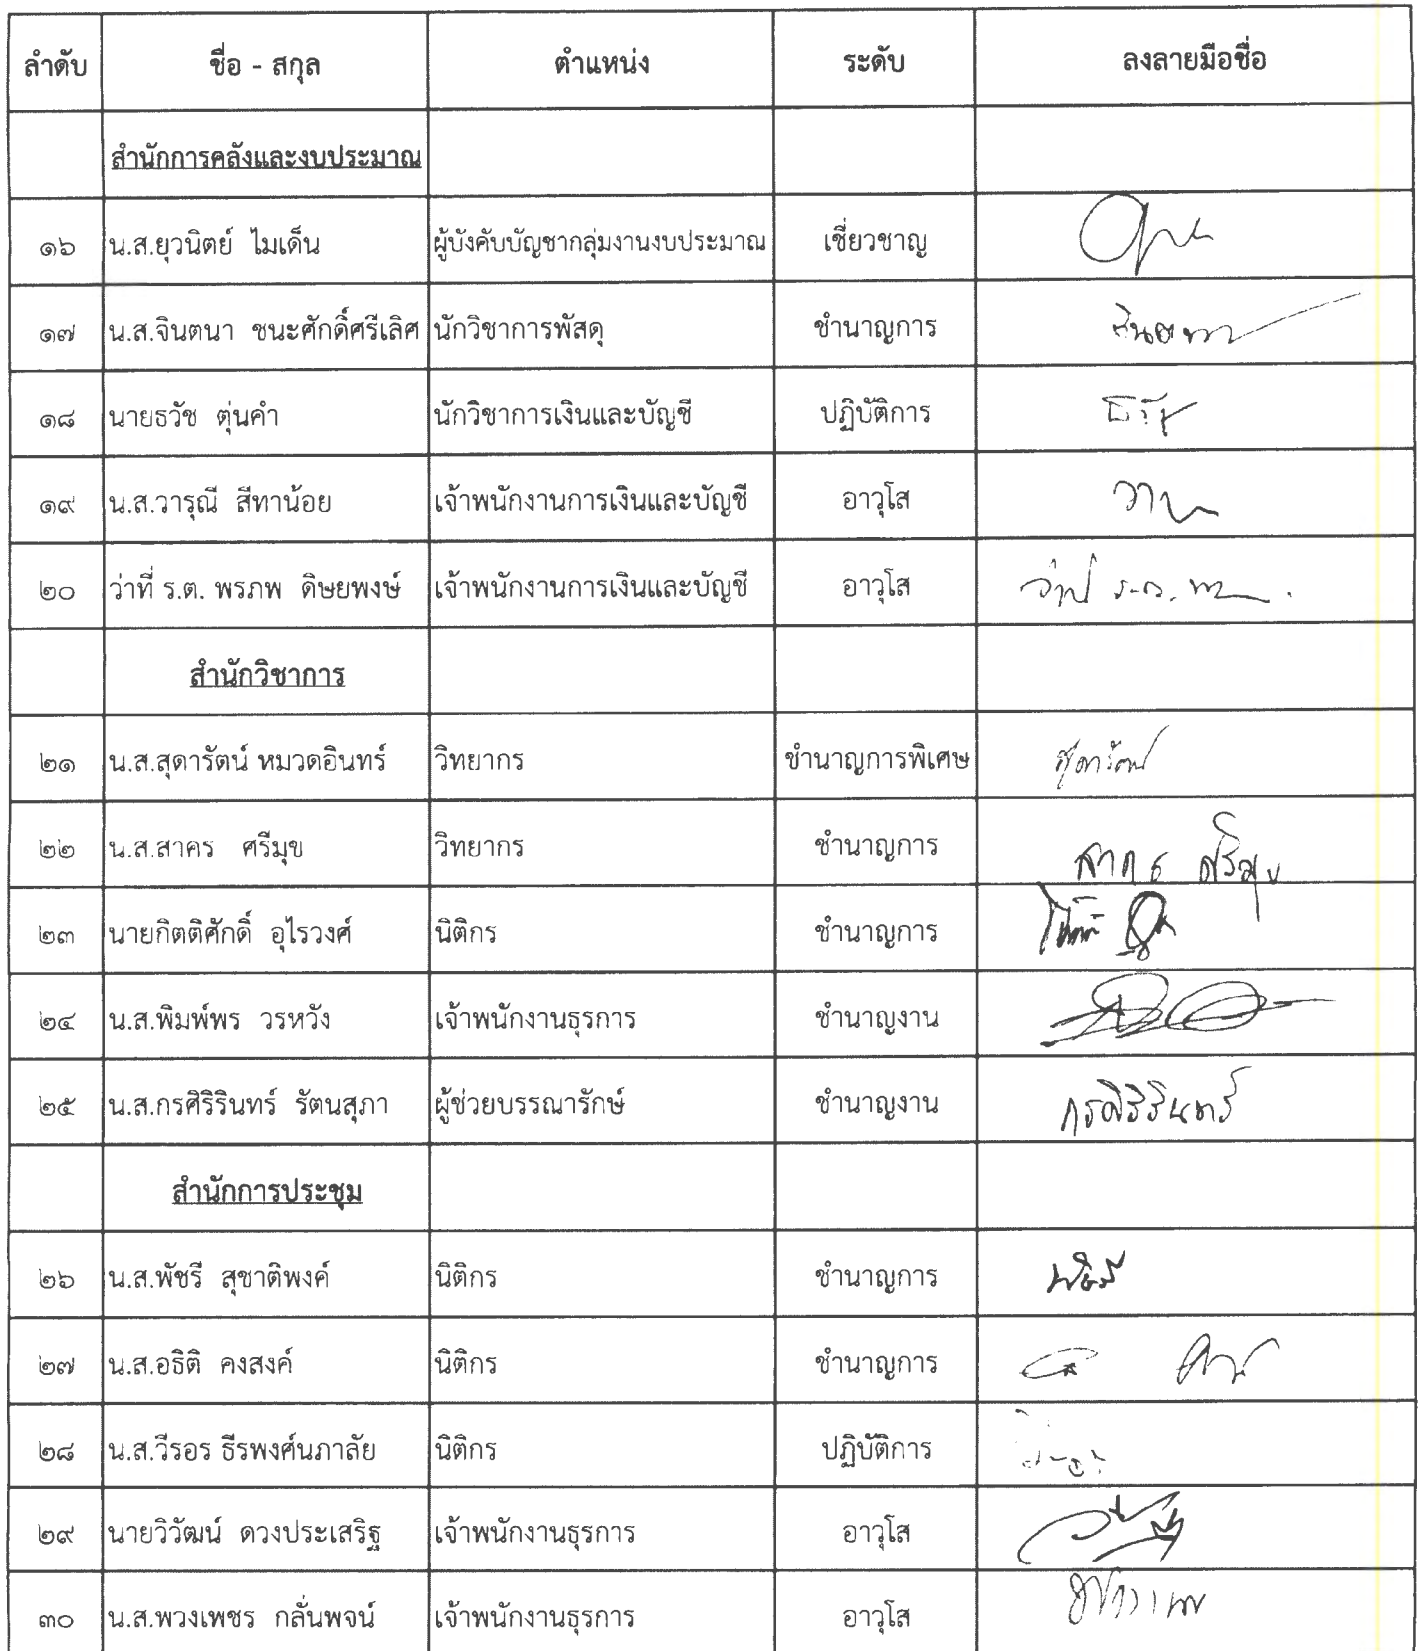 ลำดับ ชื่อ - สกุล ตำแหน่ง ระดับ ลงลายมือชื่อ
สำนักการคลังและงบประมาณ
๑๖ น.ส.ยุวนิตย์ ไมเด็น ผู้บังคับบัญชากลุ่มงานงบประมาณ เชี่ยวชาญ
๑๗ น.ส.จินตนา ชนะศักดิ์ศรีเลิศ นักวิชาการพัสดุ ชำนาญการ จินตนา
๑๘ นายธวัช ตุ่นคำ นักวิชาการเงินและบัญชี ปฏิบัติการ
๑๙ น.ส.วารุณี สีทาน้อย เจ้าพนักงานการเงินและบัญชี อาวุโส
๒๐ ว่าที่ ร.ต. พรภพ ดิษยพงษ์ เจ้าพนักงานการเงินและบัญชี อาวุโส ว่าที่ ร.ต.
สำนักวิชาการ
๒๑ น.ส.สุดารัตน์ หมวดอินทร์ วิทยากร ชำนาญการพิเศษ สุดารัตน์
๒๒ น.ส.สาคร ศรีมุข วิทยากร ชำนาญการ สาคร ศรีมุข
๒๓ นายกิตติศักดิ์ อุไรวงศ์ นิติกร ชำนาญการ
๒๔ น.ส.พิมพ์พร วรหวัง เจ้าพนักงานธุรการ ชำนาญงาน
๒๕ น.ส.กรศิริรินทร์ รัตนสุภา ผู้ช่วยบรรณารักษ์ ชำนาญงาน กรศิริรินทร์
สำนักการประชุม
๒๖ น.ส.พัชรี สุชาติพงค์ นิติกร ชำนาญการ พัชรี
๒๗ น.ส.อธิติ คงสงค์ นิติกร ชำนาญการ
๒๘ น.ส.วีรอร ธีรพงศ์นภาลัย นิติกร ปฏิบัติการ
๒๙ นายวิวัฒน์ ดวงประเสริฐ เจ้าพนักงานธุรการ อาวุโส
๓๐ น.ส.พวงเพชร กลั่นพจน์ เจ้าพนักงานธุรการ อาวุโส